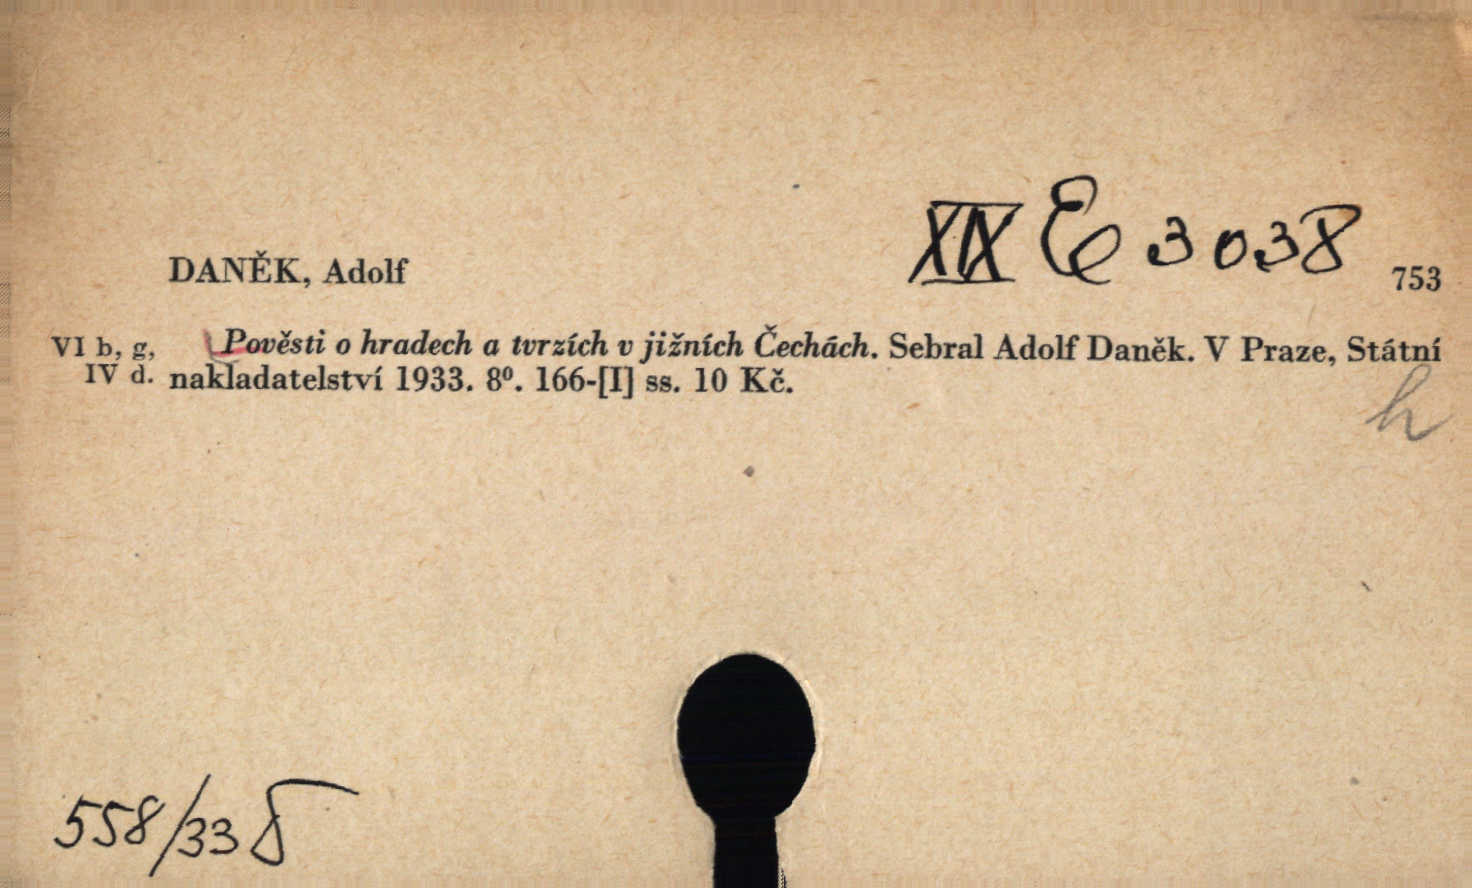 XIX E 3038
DANĚK, Adolf
753
VI b, g,
IV d.
Pověsti o hradech a tvrzích v jižních Čechách. Sebral Adolf Daněk. V Praze, Státní
nakladatelství 1933. 8⁰. 166-[I] ss. 10 Kč.
h
558/33